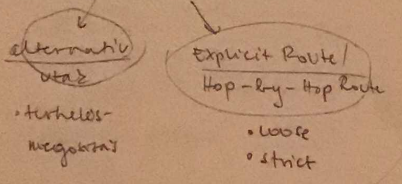 alternatív
utak
• terhelés-
megosztás
Explicit Route /
Hop-by-Hop Route
• loose
• strict